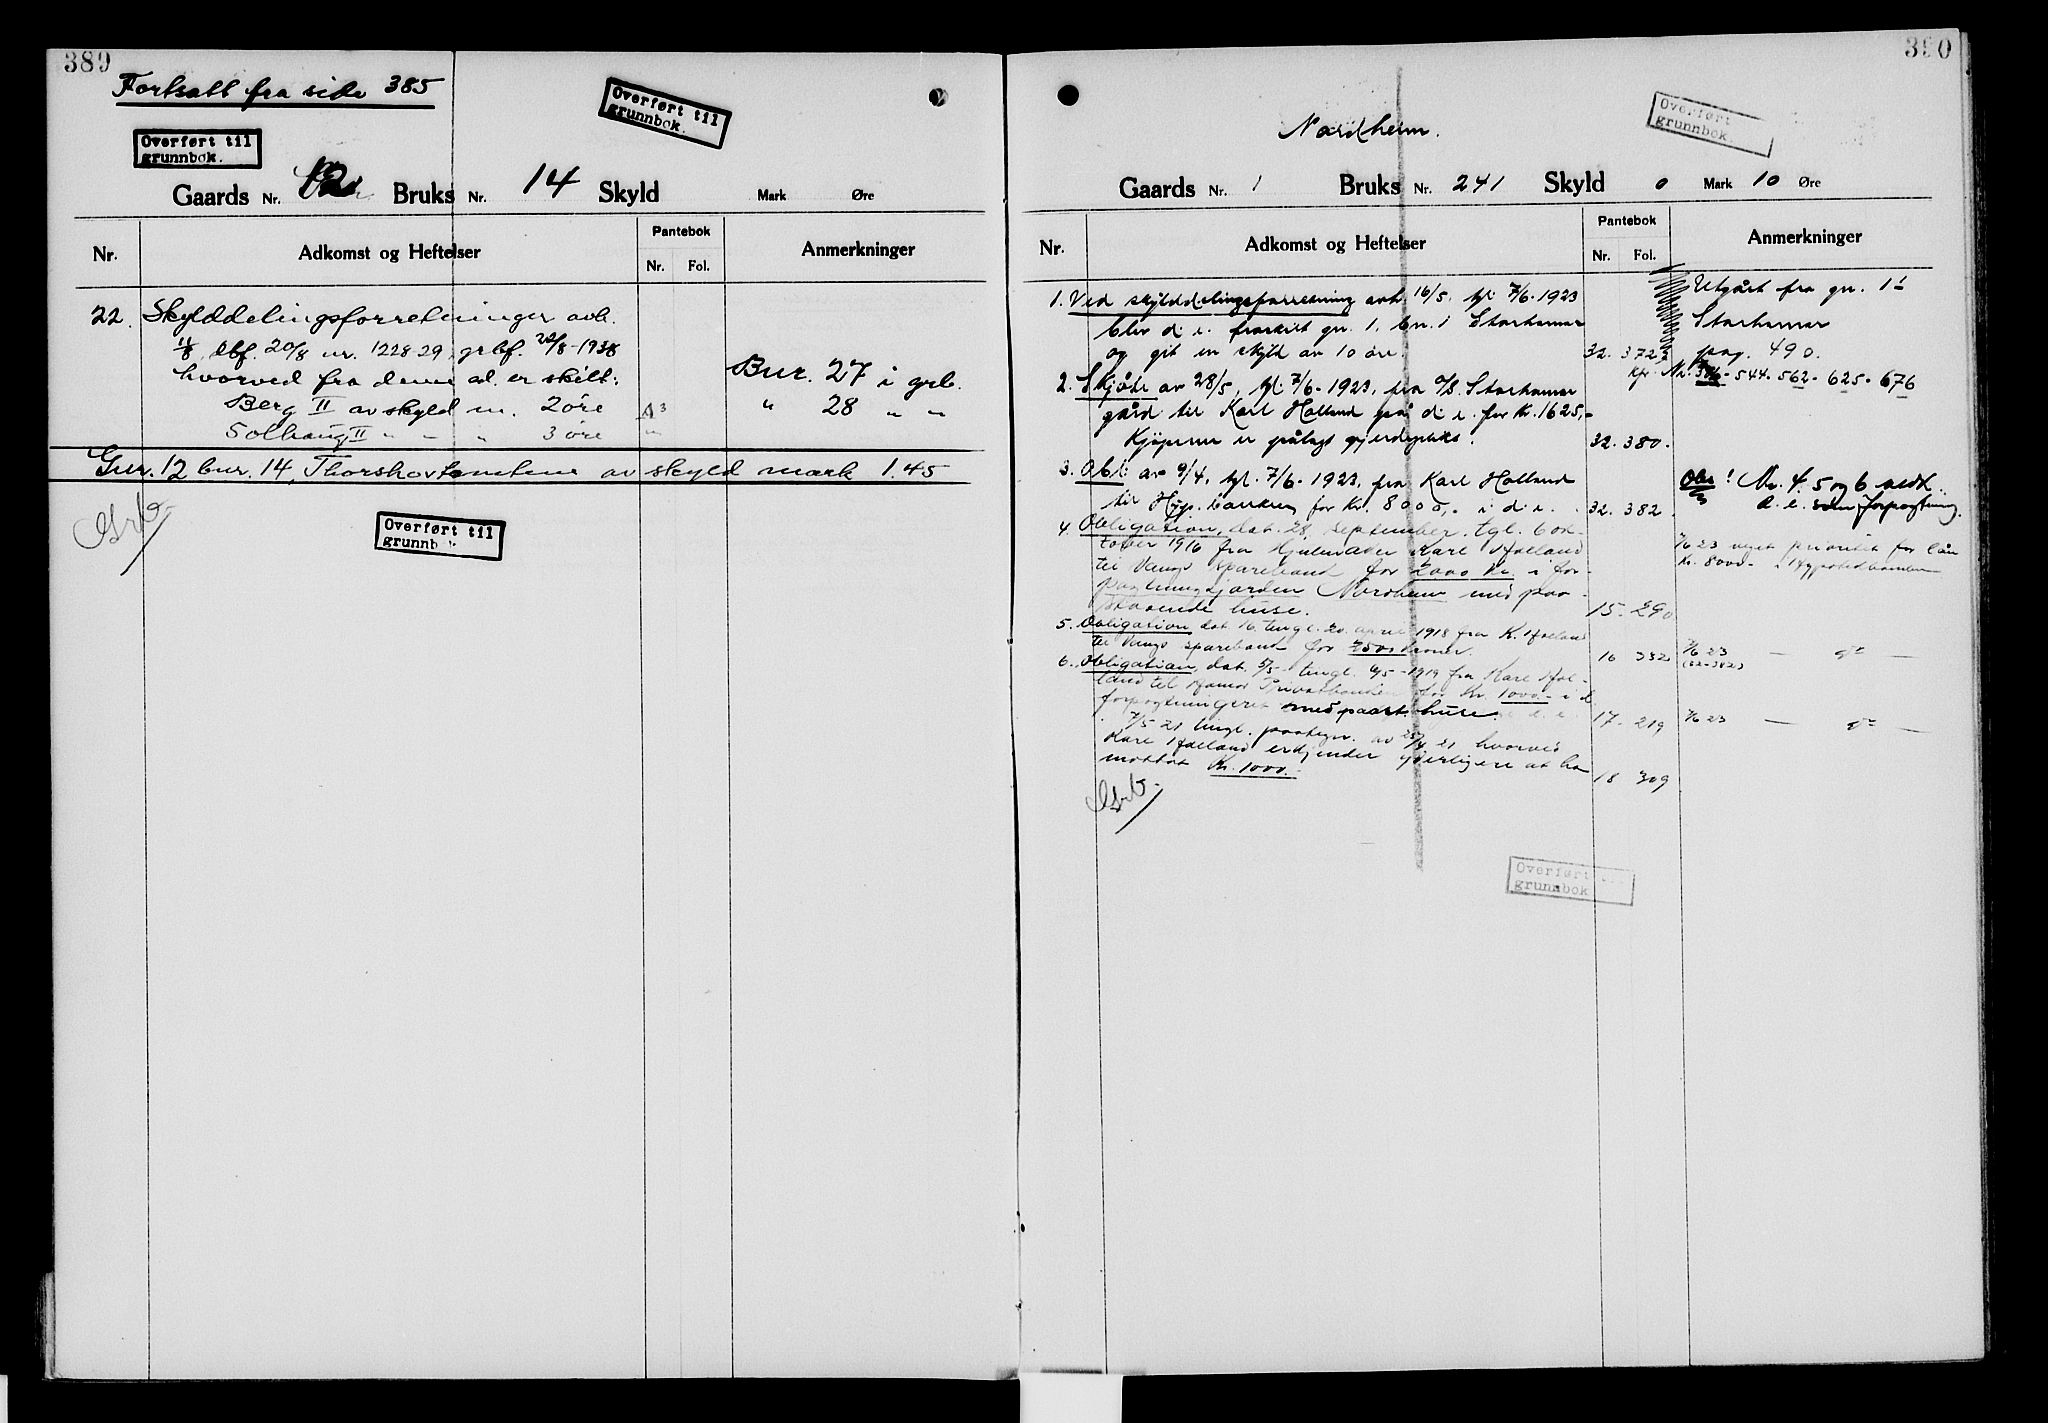 389
Fortsatt fra side 385
Overført til
grunnbok.
Overført til
grunnbok.
Gaards Nr. 12 Bruks Nr. 14 Skyld Mark Øre
Nr. Adkomst og Heftelser Pantebok Nr. Fol. Anmerkninger
22. Skylddelingsforretninger avh.
11/8, dbf. 20/8 nr. 1228 29, grbf. 22/8-1938
hvorved fra denne ed. er skilt:
Berg II av skyld m. 2 øre A3 Bnr. 27 i grb.
Solhaug II " " " 3 øre " " 28 " "
Gnr. 12 bnr. 14, Thorshovtomtene av skyld mark 1.45
Overført til
grunnbok
390
Nordheim.
Overført
grunnbok
Gaards Nr. 1 Bruks Nr. 241 Skyld 0 Mark 10 Øre
Nr. Adkomst og Heftelser Pantebok Nr. Fol. Anmerkninger
1. Ved skylddelingsforretning avh. 16/5, tgl. 7/6-1923
blev d. e. fraskilt gn. 1, bn. 1 Storhamar
og git en skyld av 10 øre. 32. 372
Utgått fra gn. 1
Storhamar
pag. 490.
Kfr. Nr. - 544 - 562 - 625 - 676
2. Skjøte av 28/5, tgl. 7/6-1923, fra A/S. Storhamar
gård til Karl Holland på d. e. for Kr. 1625,-
Kjøperen er pålagt gjerdeplikt. 32. 380.
3. Obl. av 9/4, tgl. 7/6-1923, fra Karl Holland
til Hyp. banken for Kr. 8000,- i d. e. 32. 382.
Obs! Nr. 4, 5 og 6 vedk.
d. e. som forpagtning.
4. Obligation, dat. 28. september, tgl. 6 ok-
tober 1916 fra Karl Hoeland
til Vangs sparebank for 2000 kr. i for-
pagtningsjorden Nordheim med paa-
staaende huse. 15 - 290
7/6 23 veget prioritet for lån
Kr. 8000- i Hypotekbanken
5. Obligation dat. 16. tingl. 20. april 1918 fra K. Hoeland
til Vangs sparebank for kroner. 16 332
7/6 23 (32-382) — do —
6. Obligation, dat. 5/5 - tingl. 6/5 - 1919 fra Karl Hoe-
land til Hamar Privatbanken for Kr. 1000.- i d.
forpagtningsret med paast. huse. 17 - 219
7/6 23 — do —
7/5 21 tingl. paategn. av 25/4 21 hvorved
Karl Hoeland erkjender yderligere at ha
mottat Kr. 1000.- 18 309
Overført til
grunnbok